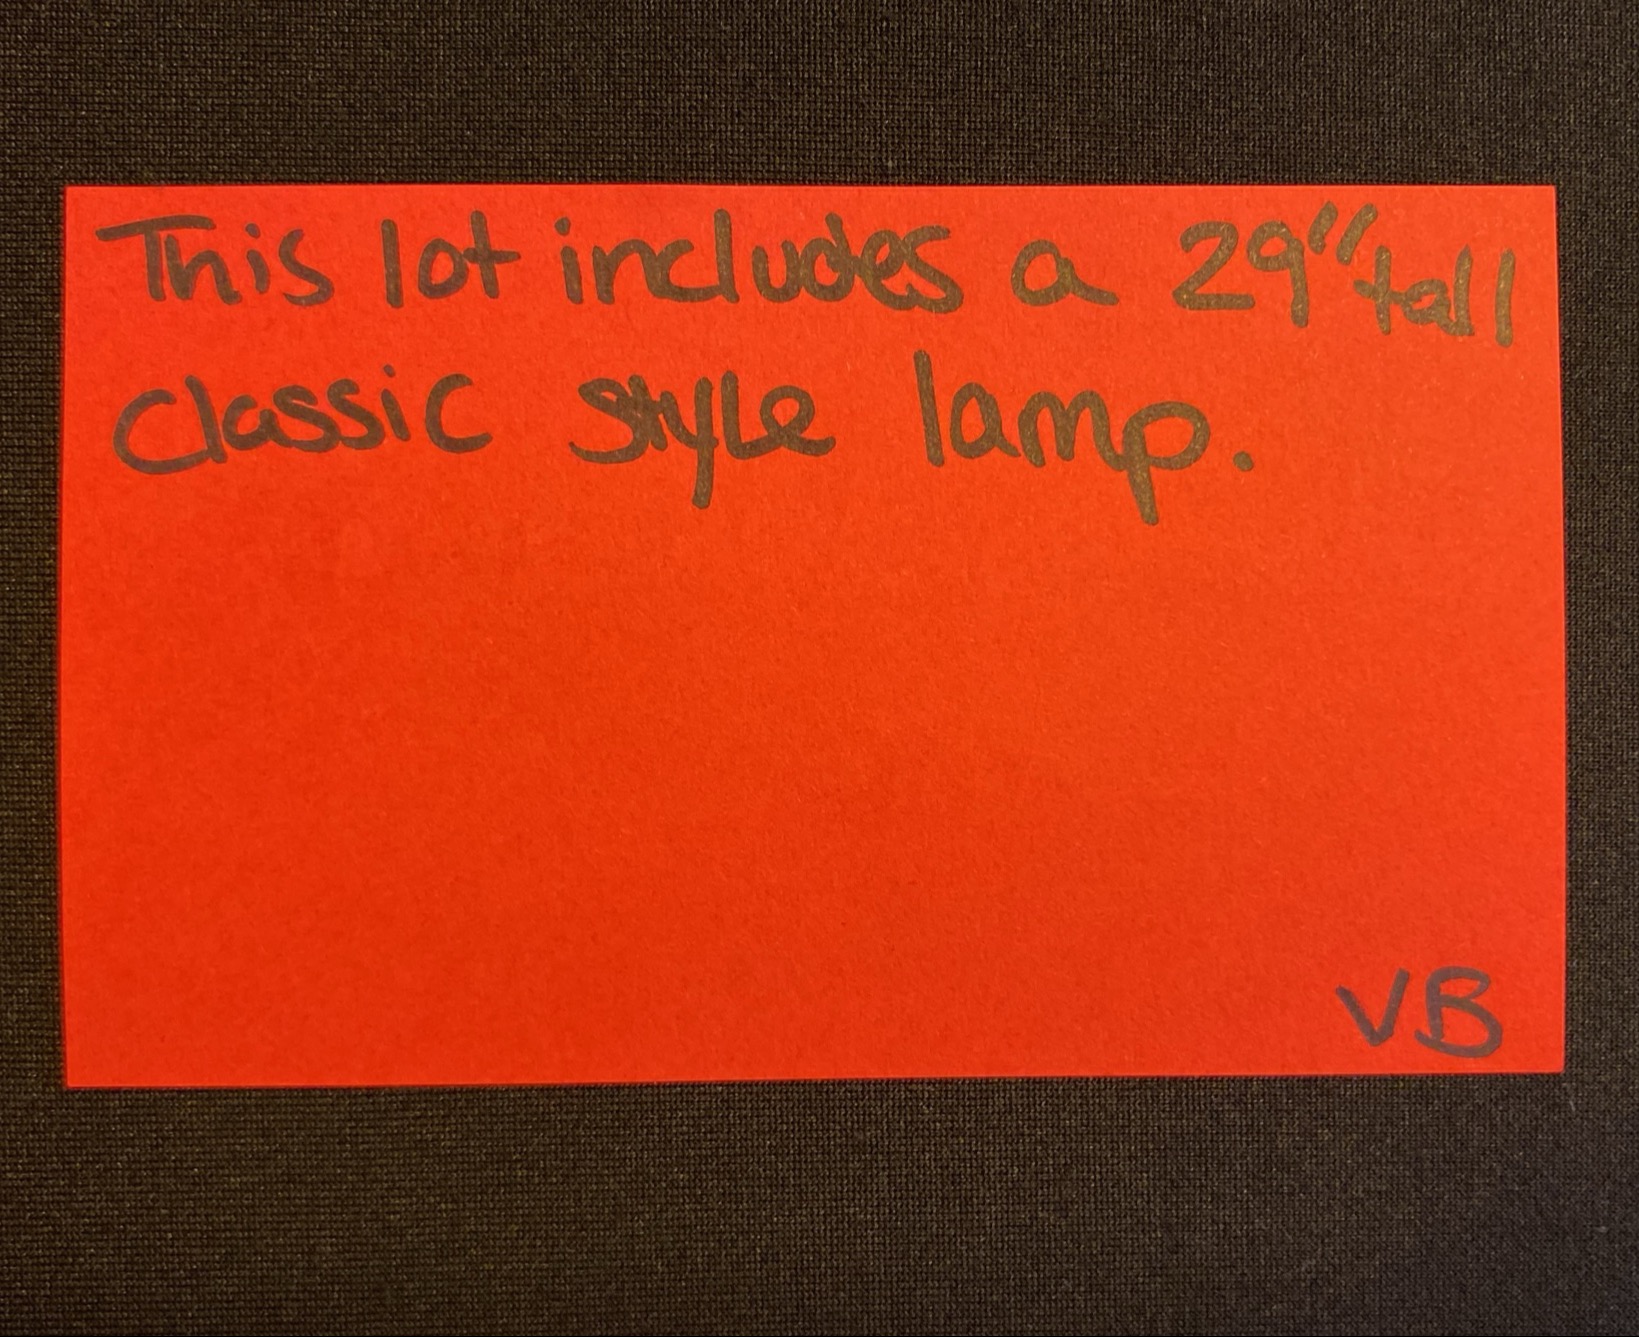 This lot includes a 29" tall
Classic style lamp.
VB